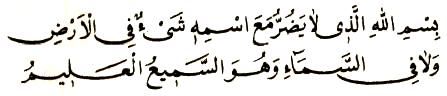 بِسْمِ اللهِ الَّذِى لَا يَضُرُّ مَعَ اسْمِهِ شَىْءٌ فِى الْاَرْضِ
وَلَا فِى السَّمَاءِ وَهُوَ السَّمِيعُ الْعَلِيمُ